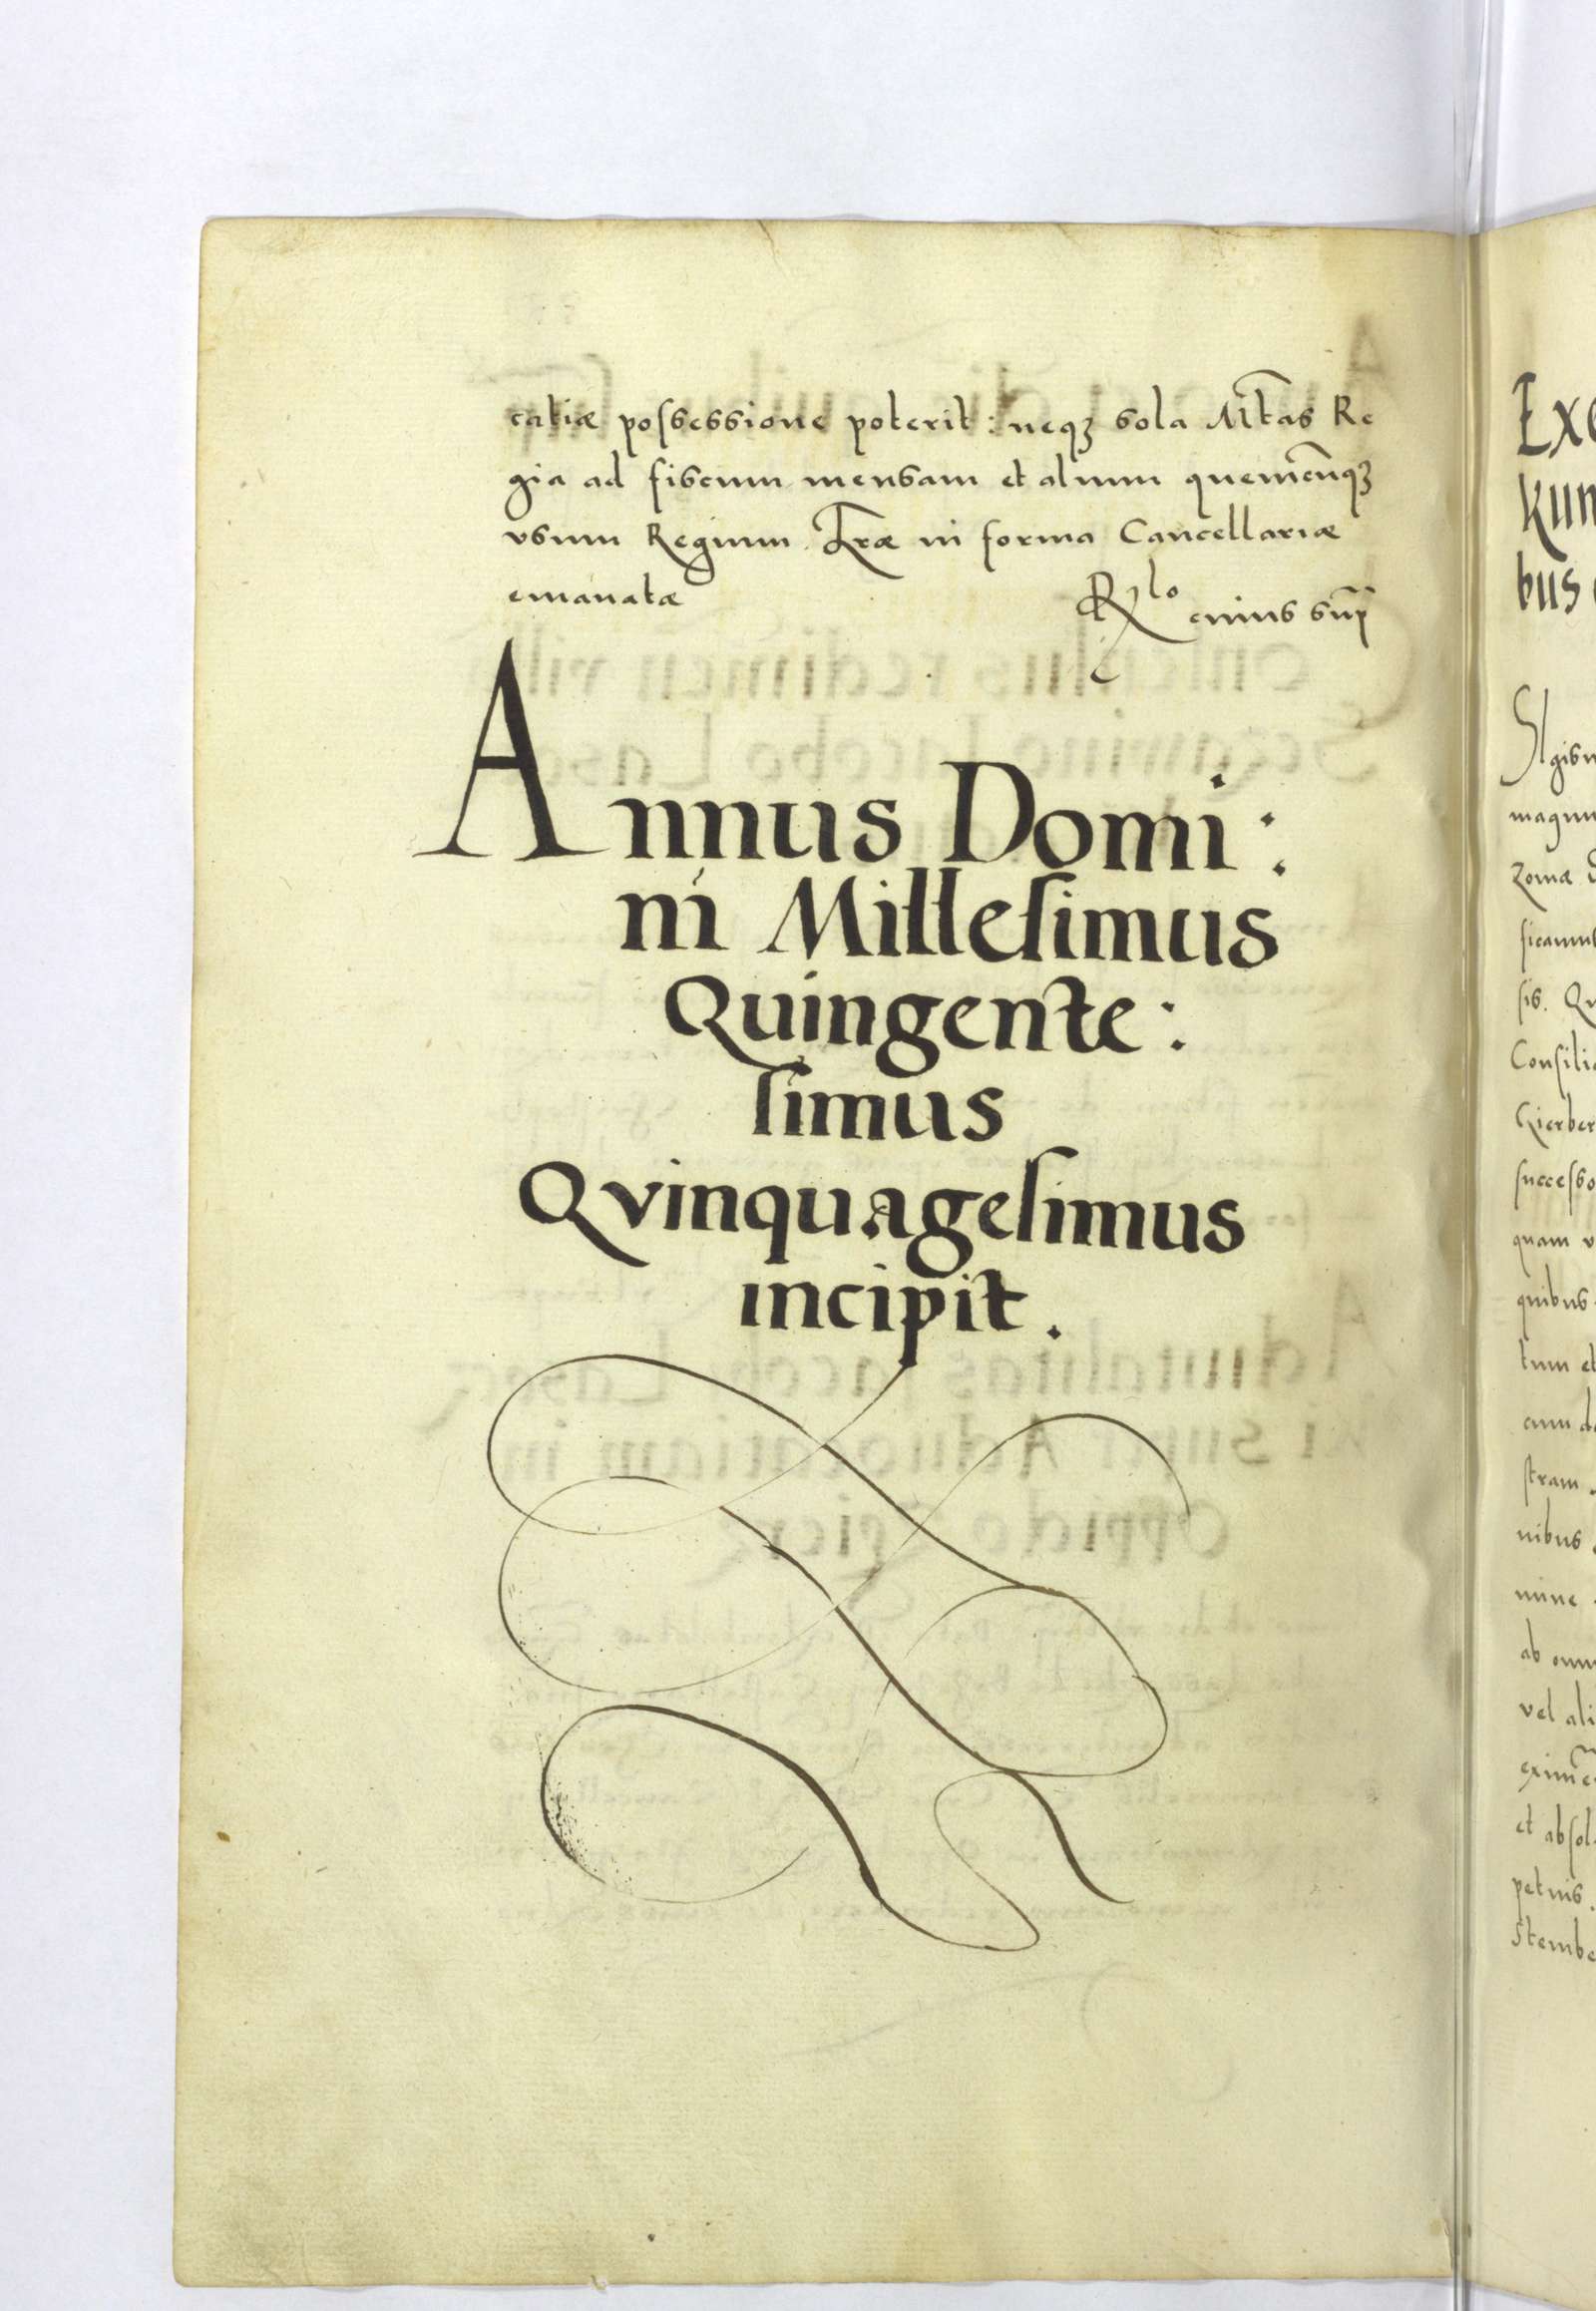 catiæ possessione poterit: neqꝫ sola M̄tas Re
gia ad fiscum mensam et alium quemcūqꝫ
vsum Regium. Lr̄æ in forma Cancellariæ
emanatæ
Rlo cuius sup̄
Annus Domi:
ni Millesimus
Quingente:
simus
Qvinquagesimus
incipit.
Exe
kun
bus
Sigism
magnu
zoniæ
ficamus
sis. Qu
Consilia
Gierber
successo
quam v
quibus
tum et
cum de
stram.
nibus
mine
ab omn
vel ali
eximē
et absol
petuis.
Stembe